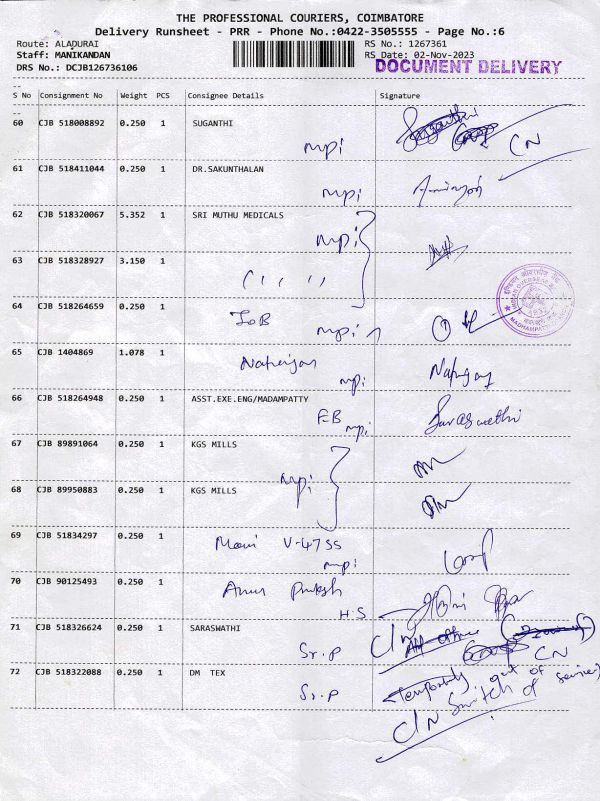 THE PROFESSIONAL COURIERS, COIMBATORE
Delivery Runsheet - PRR - Phone No.:0422-3505555 - Page No.:6
Route: ALADURAI
RS No.: 1267361
Staff: MANIKANDAN
RS Date: 02-Nov-2023
DRS No.: DCJB126736106
DOCUMENT DELIVERY
S No Consignment No Weight PCS Consignee Details Signature
60 CJB 518008892 0.250 1 SUGANTHI
mpi CN
61 CJB 518411044 0.250 1 DR.SAKUNTHALAN
mpi
62 CJB 518320067 5.352 1 SRI MUTHU MEDICALS
mpi
63 CJB 518328927 3.150 1
64 CJB 518264659 0.250 1
IOB mpi
65 CJB 1404869 1.078 1
mpi
66 CJB 518264948 0.250 1 ASST.EXE.ENG/MADAMPATTY
EB mpi Saraswathi
67 CJB 89891064 0.250 1 KGS MILLS
mpi
68 CJB 89950883 0.250 1 KGS MILLS
69 CJB 51834297 0.250 1
Mani
mpi
70 CJB 90125493 0.250 1
H.S
71 CJB 518326624 0.250 1 SARASWATHI
Sr.p C/N CN
72 CJB 518322088 0.250 1 DM TEX
Sr.p Temporarily out of service
C/N Switch of